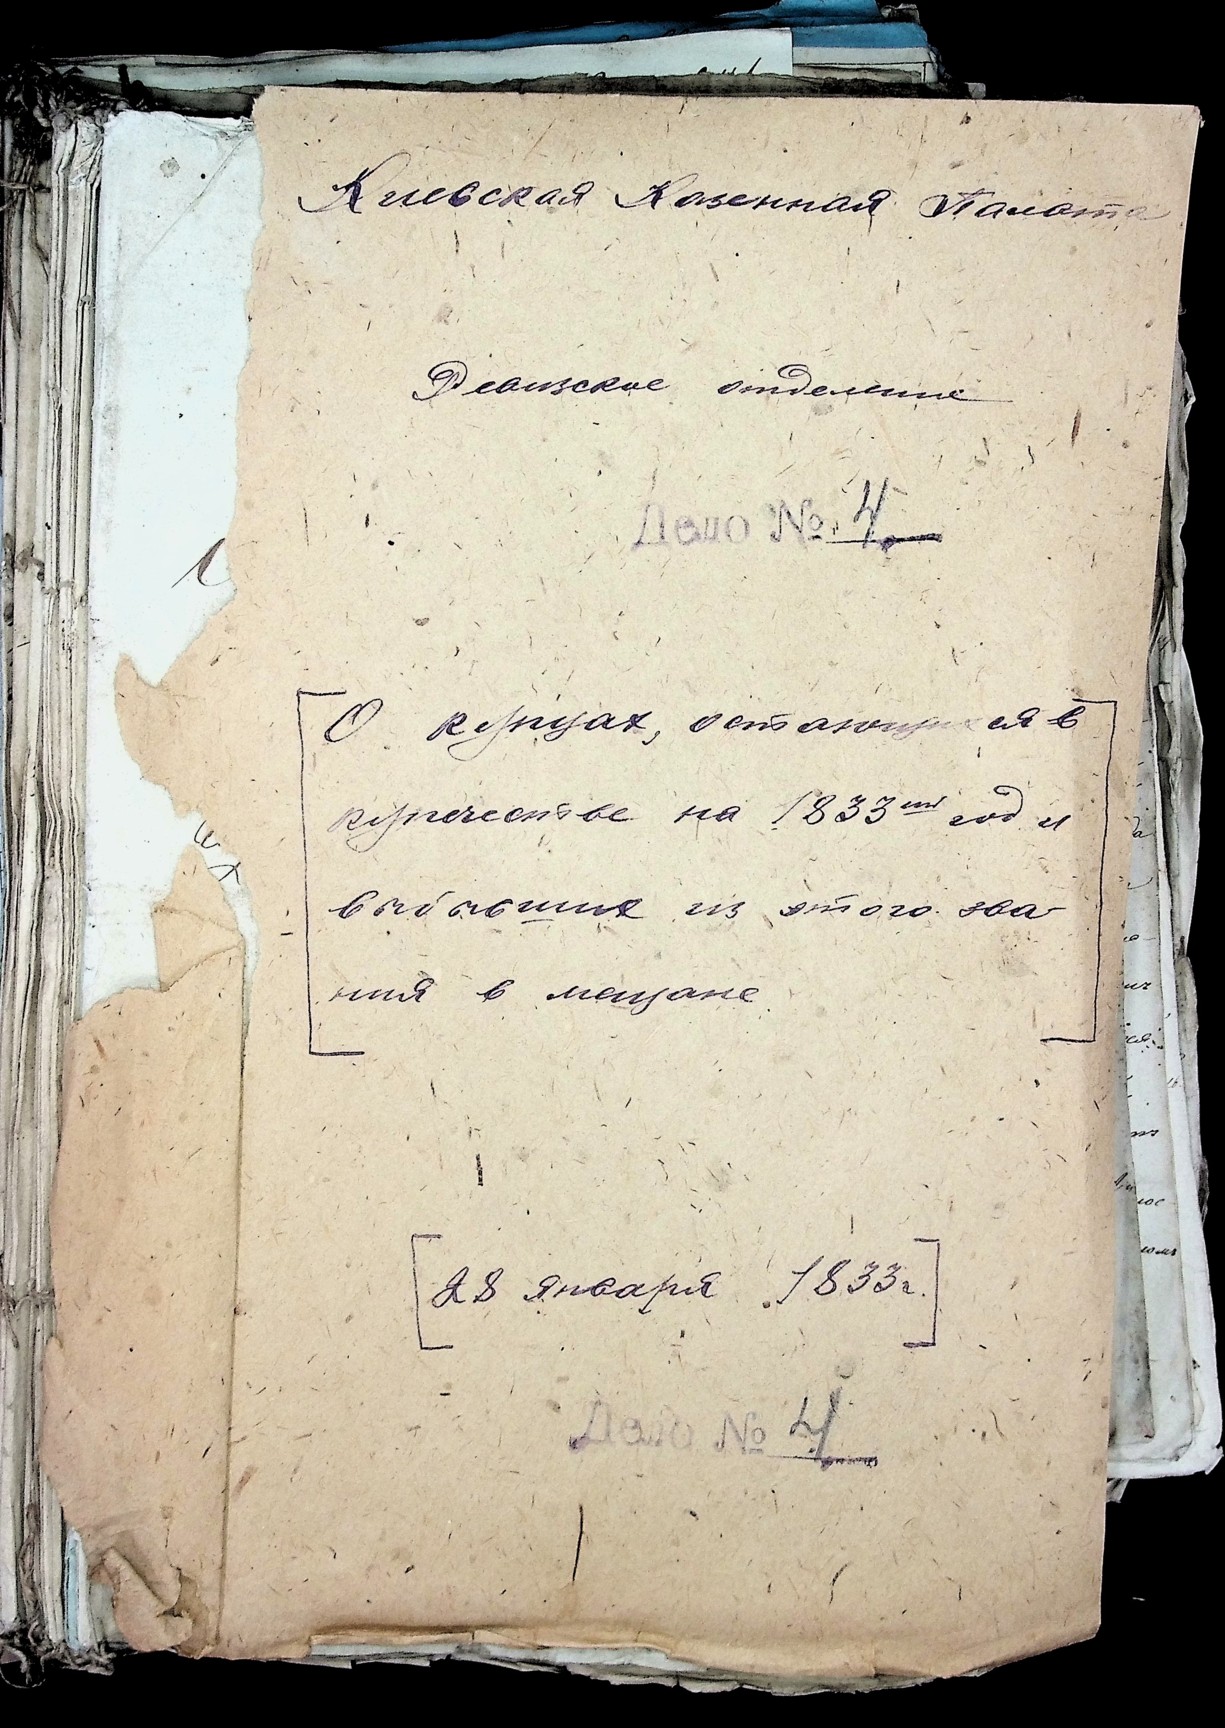 Киевская Казенная Палата
Ревизское отделение
Дело № 4
О купцах, остающихся в
купечестве на 1833ий год и
выбывших из этого зва-
ния в мещане
28 января 1833г.
Дело № 4